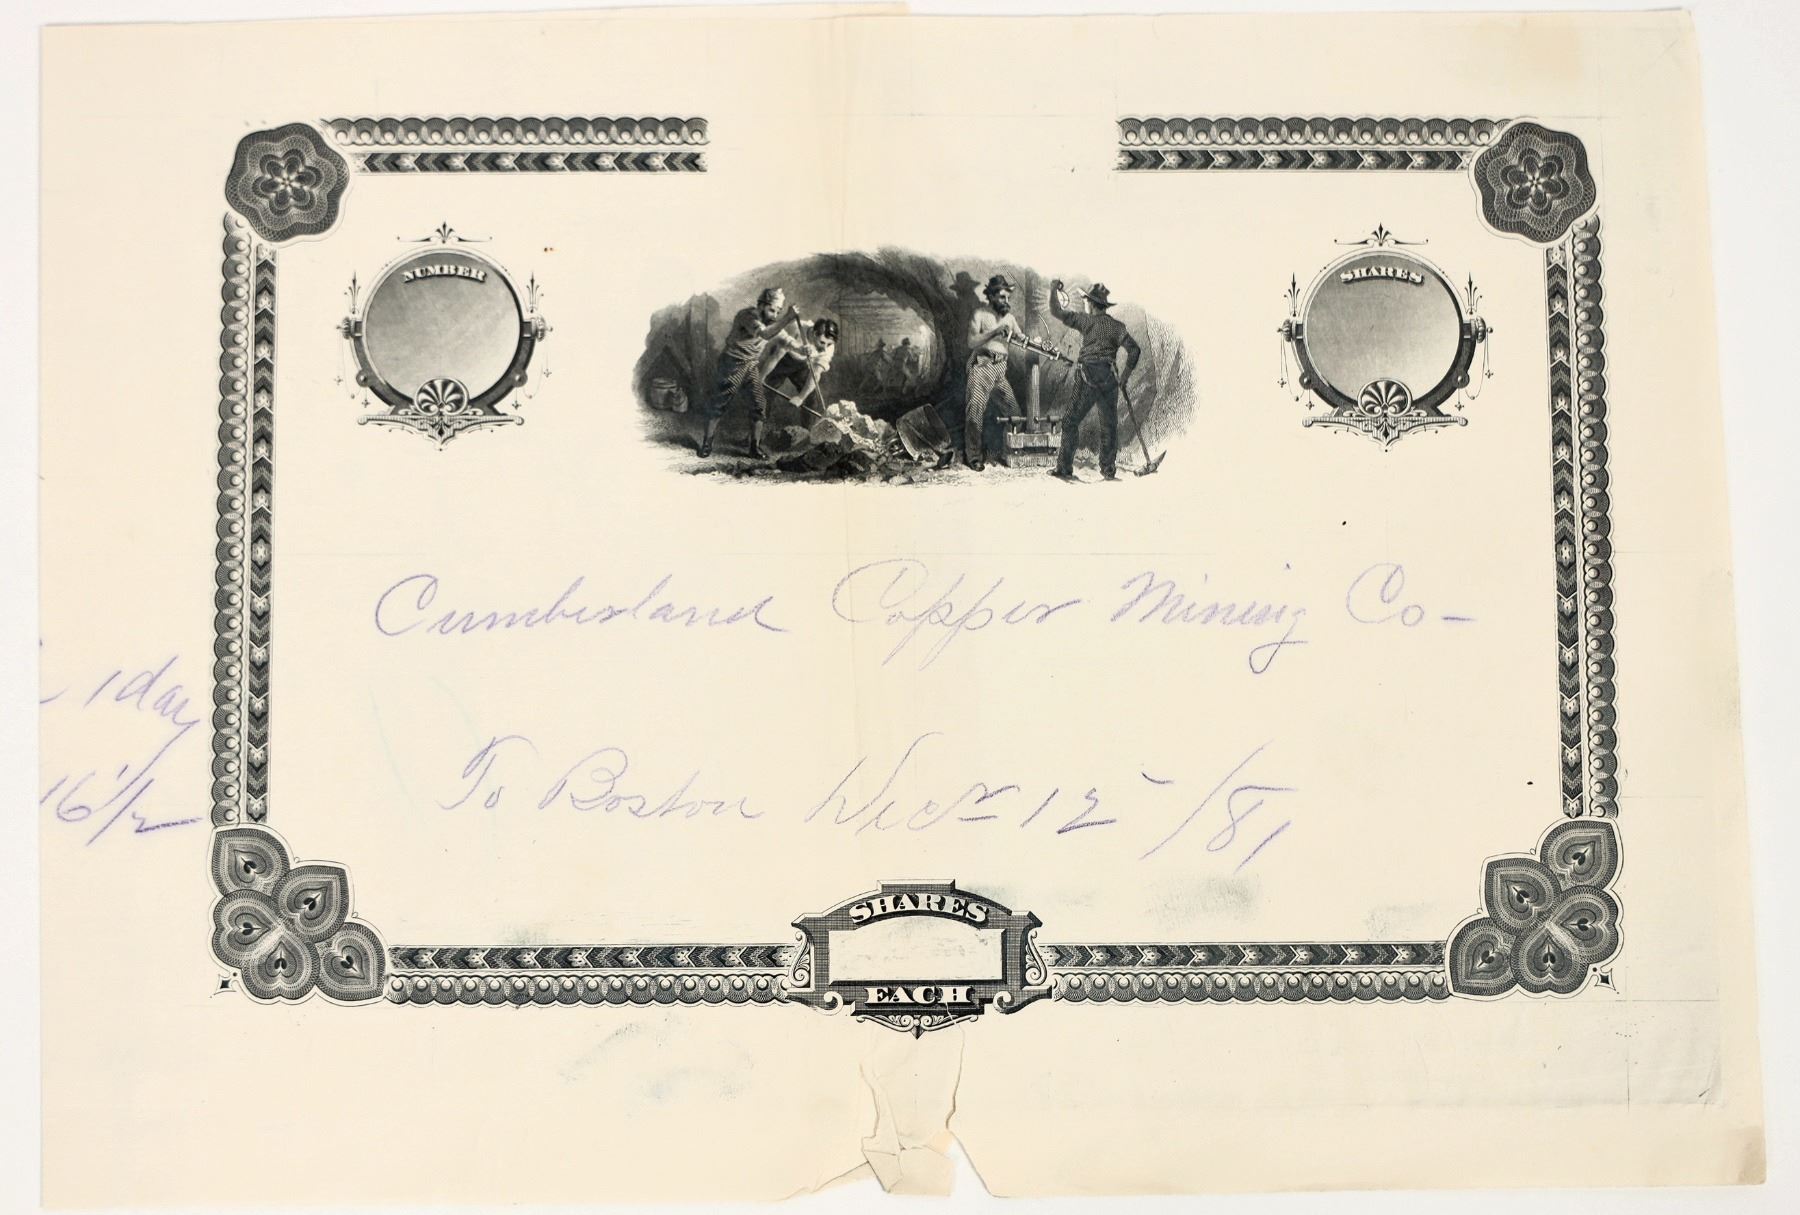 NUMBER
SHARES
Cumberland Copper Mining Co-
1 day
16 1/2
To Boston Decr 12 /81
SHARES
EACH